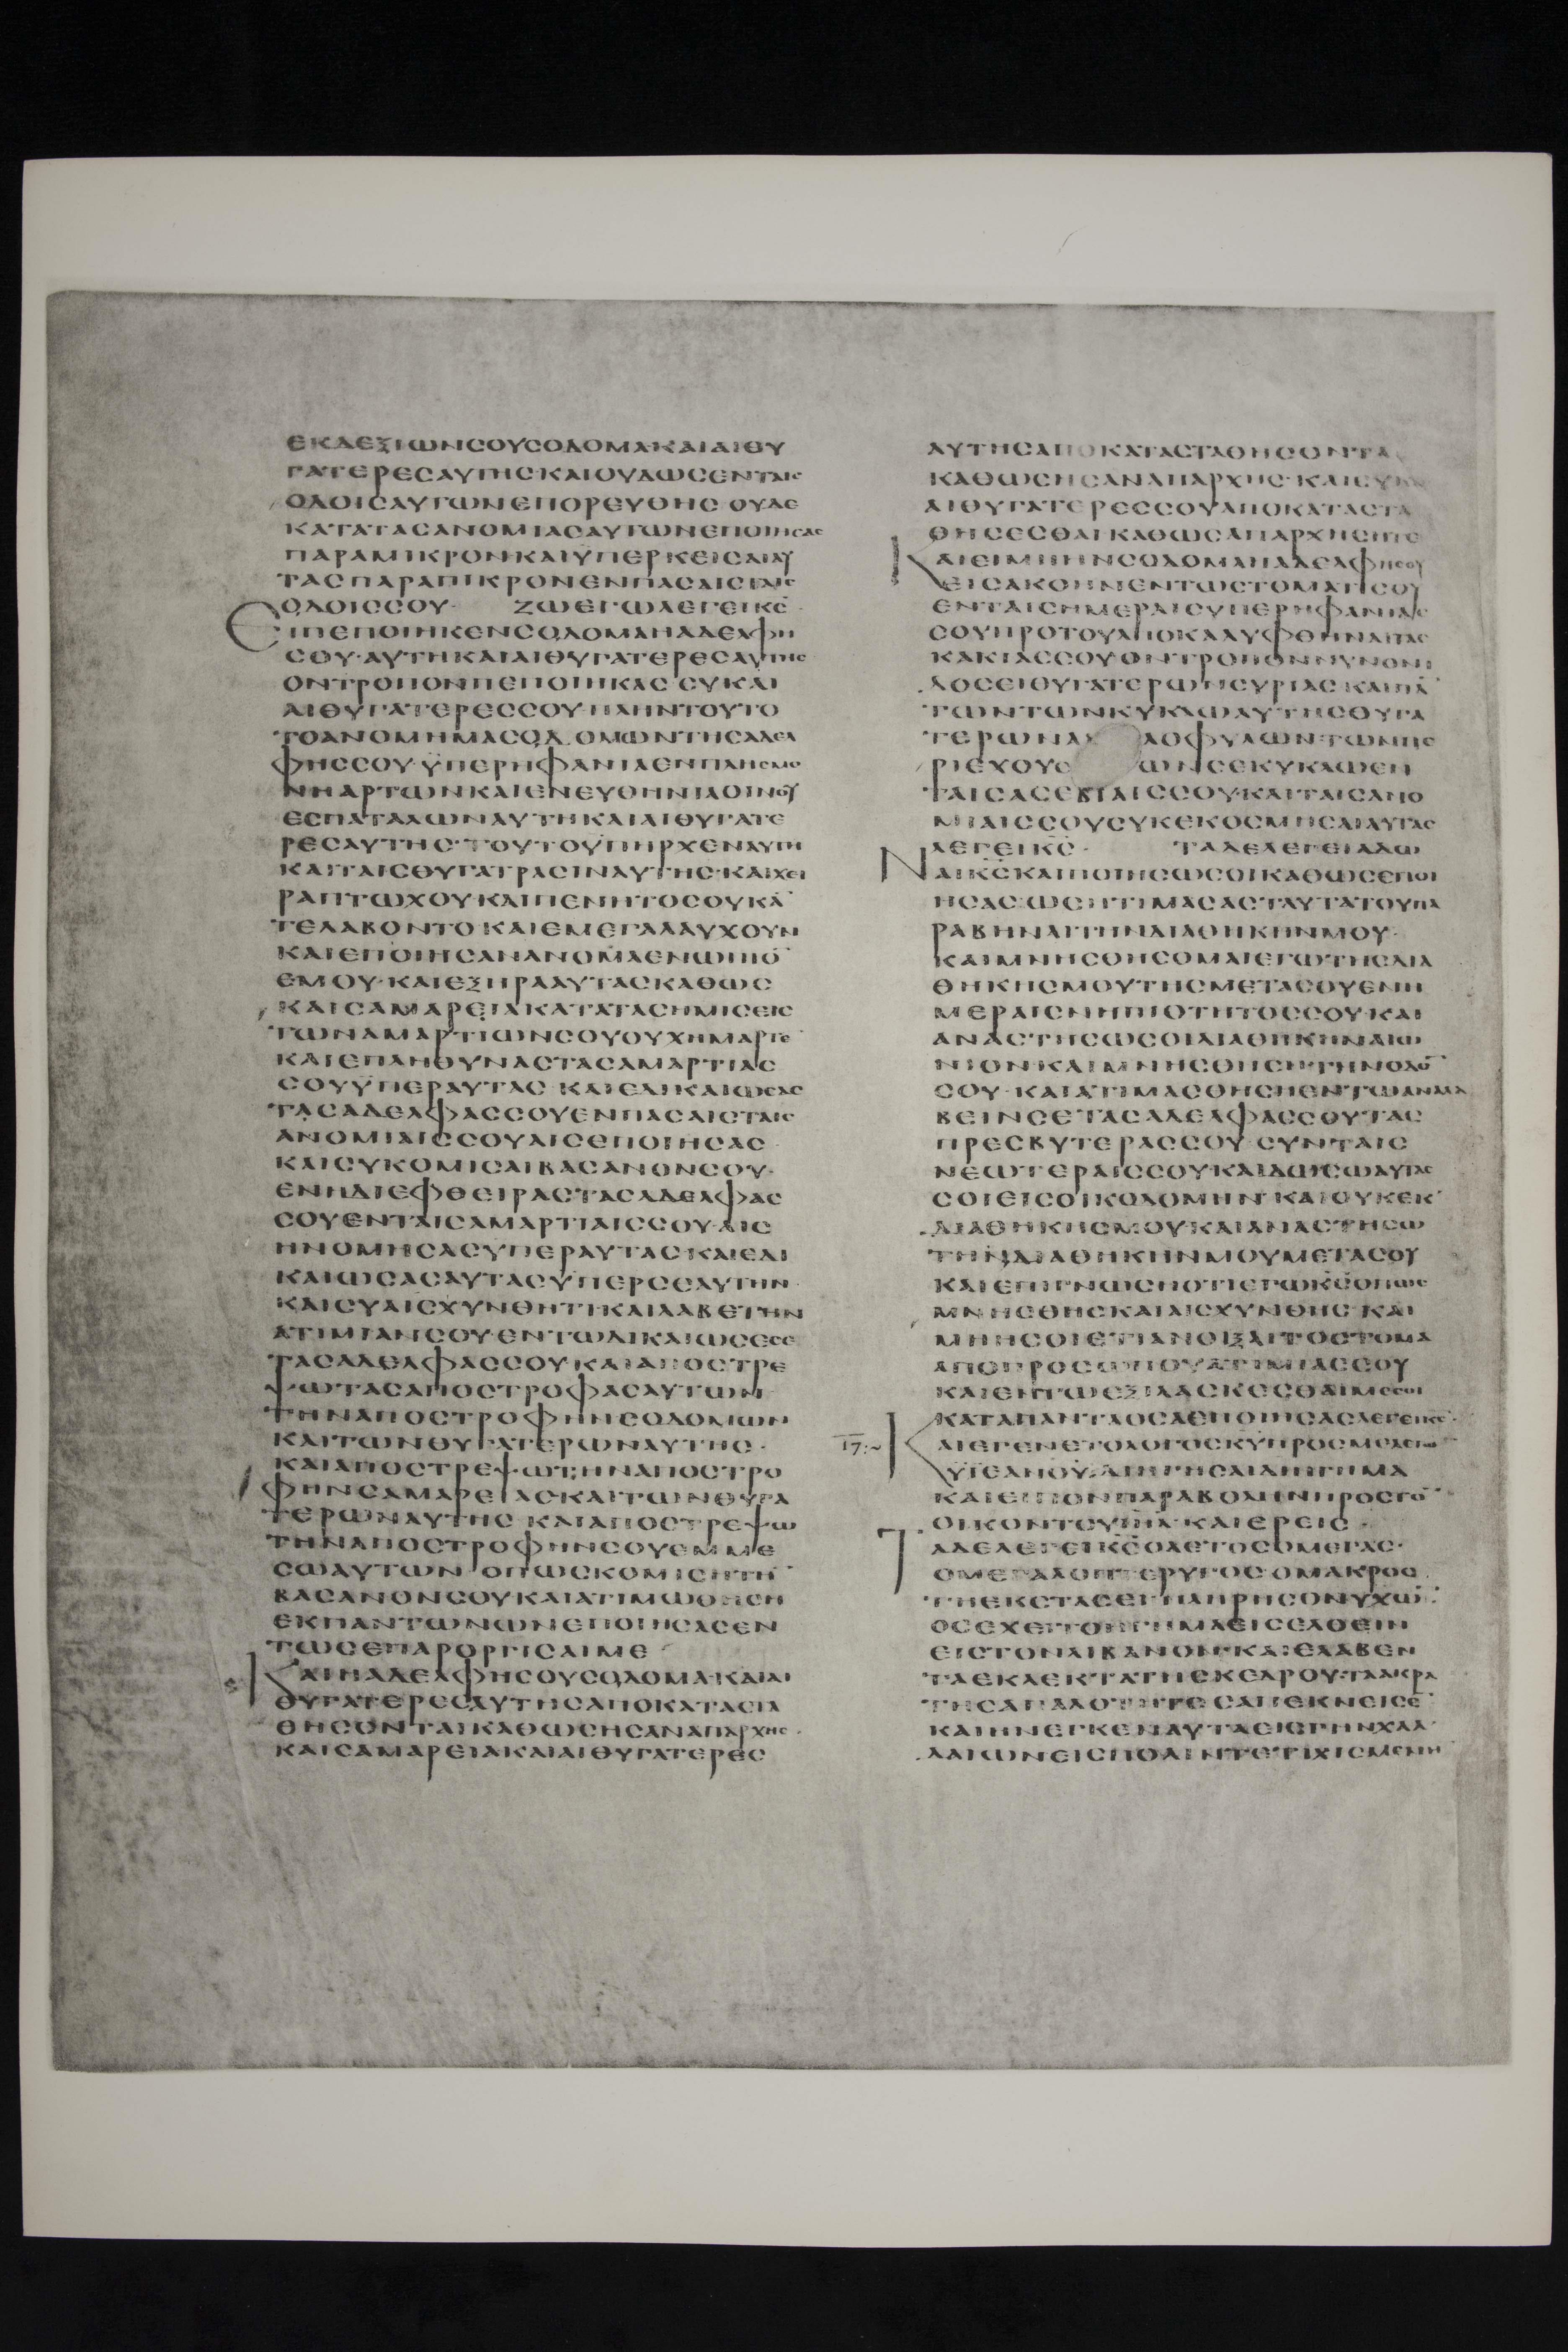 ΕΚΔΕΞΙΩΝCΟΥCΟΔΟΜΑ·ΚΑΙΑΙΘΥ
ΓΑΤΕΡΕCΑΥΤΗC·ΚΑΙΟΥΔΩCΕΝΤΑΙC
ΟΔΟΙCΑΥΤΩΝΕΠΟΡΕΥΘΗC·ΟΥΔΕ
ΚΑΤΑΤΑCΑΝΟΜΙΑCΑΥΤΩΝΕΠΟΙΗCΑC
ΠΑΡΑΜΙΚΡΟΝΚΑΙΫΠΕΡΚΕΙCΑΙΑΥ
ΤΑCΠΑΡΑΠΙΚΡΟΝΕΝΠΑCΑΙCΤΑΙC
ΟΔΟΙCCΟΥ· ΖΩΕΓΩΛΕΓΕΙΚC
ΕΙΠΕΠΟΙΗΚΕΝCΟΔΟΜΑΗΑΔΕΛΦΗ
CΟΥ·ΑΥΤΗΚΑΙΑΙΘΥΓΑΤΕΡΕCΑΥΤΗC
ΟΝΤΡΟΠΟΝΠΕΠΟΙΗΚΑC·CΥΚΑΙ
ΑΙΘΥΓΑΤΕΡΕCCΟΥ·ΠΛΗΝΤΟΥΤΟ
ΤΟΑΝΟΜΗΜΑCΟΔΟΜΩΝΤΗCΑΔΕΛ
ΦΗCCΟΥ·ΫΠΕΡΗΦΑΝΙΑΕΝΠΛΗCΜΟ
ΝΗΑΡΤΩΝΚΑΙΕΝΕΥΘΗΝΙΑΟΙΝΟΥ
ΕCΠΑΤΑΛΩΝΑΥΤΗΚΑΙΑΙΘΥΓΑΤΕ
ΡΕCΑΥΤΗC·ΤΟΥΤΟΫΠΗΡΧΕΝΑΥΤΗ
ΚΑΙΤΑΙCΘΥΓΑΤΡΑCΙΝΑΥΤΗC·ΚΑΙΧΕΙ
ΡΑΠΤΩΧΟΥΚΑΙΠΕΝΗΤΟCΟΥΚᾹ
ΤΕΛΑΒΟΝΤΟΚΑΙΕΜΕΓΑΛΑΥΧΟΥΝ
ΚΑΙΕΠΟΙΗCΑΝΑΝΟΜΑΕΝΩΠΙΟ̄
ΕΜΟΥ·ΚΑΙΕΞΗΡΑΑΥΤΑCΚΑΘΩC
ΚΑΙCΑΜΑΡΕΙΑΚΑΤΑΤΑCΗΜΙCΕΙC
ΤΩΝΑΜΑΡΤΙΩΝCΟΥΟΥΧΗΜΑΡΤΕ̄
ΚΑΙΕΠΛΗΘΥΝΑCΤΑCΑΜΑΡΤΙΑC
CΟΥΫΠΕΡΑΥΤΑC·ΚΑΙΕΔΙΚΑΙΩCΑC
ΤΑCΑΔΕΛΦΑCCΟΥΕΝΠΑCΑΙCΤΑΙC
ΑΝΟΜΙΑΙCCΟΥΑΙCΕΠΟΙΗCΑC·
ΚΑΙCΥΚΟΜΙCΑΙΒΑCΑΝΟΝCΟΥ·
ΕΝΗΔΙΕΦΘΕΙΡΑCΤΑCΑΔΕΛΦΑC
CΟΥΕΝΤΑΙCΑΜΑΡΤΙΑΙCCΟΥ·ΑΙC
ΗΝΟΜΗCΑCΥΠΕΡΑΥΤΑCΚΑΙΕΔΙ
ΚΑΙΩCΑCΑΥΤΑCΫΠΕΡCΕΑΥΤΗΝ·
ΚΑΙCΥΑΙCΧΥΝΘΗΤΙΚΑΙΛΑΒΕΤΗΝ
ΑΤΙΜΙΑΝCΟΥ·ΕΝΤΩΔΙΚΑΙΩCCΕ
ΤΑCΑΔΕΛΦΑCCΟΥΚΑΙΑΠΟCΤΡΕ
ΨΩΤΑCΑΠΟCΤΡΟΦΑCΑΥΤΩΝ
ΤΗΝΑΠΟCΤΡΟΦΗΝCΟΔΟΜΩΝ
ΚΑΙΤΩΝΘΥΓΑΤΕΡΩΝΑΥΤΗC·
ΚΑΙΑΠΟCΤΡΕΨΩΤΗΝΑΠΟCΤΡΟ
ΦΗΝCΑΜΑΡΕΙΑC·ΚΑΙΤΩΝΘΥΓΑ
ΤΕΡΩΝΑΥΤΗC·ΚΑΙΑΠΟCΤΡΕΨΩ
ΤΗΝΑΠΟCΤΡΟΦΗΝCΟΥΕΜΜΕ
CΩΑΥΤΩΝ ΟΠΩCΚΟΜΙCΗΤΗ̄
ΒΑCΑΝΟΝCΟΥΚΑΙΑΤΙΜΩΘΗCΗ
ΕΚΠΑΝΤΩΝΩΝΕΠΟΙΗCΑCΕΝ
ΤΩCΕΠΑΡΟΡΓΙCΑΙΜΕ
ΚΑΙΗΑΔΕΛΦΗCΟΥCΟΔΟΜΑ·ΚΑΙΑΙ
ΘΥΓΑΤΕΡΕCΑΥΤΗCΑΠΟΚΑΤΑCΤΑ
ΘΗCΟΝΤΑΙΚΑΘΩCΗCΑΝΑΠΑΡΧΗC·
ΚΑΙCΑΜΑΡΕΙΑΚΑΙΑΙΘΥΓΑΤΕΡΕC
ΑΥΤΗCΑΠΟΚΑΤΑCΤΑΘΗCΟΝΤΑ
ΚΑΘΩCΗCΑΝΑΠΑΡΧΗC·ΚΑΙCΥΚ
ΑΙΘΥΓΑΤΕΡΕCCΟΥΑΠΟΚΑΤΑCΤΑ
ΘΗCΕCΘΑΙΚΑΘΩCΑΠΑΡΧΗCΗΤΕ
ΚΑΙΕΙΜΗΗΝCΟΔΟΜΑΗΑΔΕΛΦΗCΟΥ
ΕΙCΑΚΟΗΝΕΝΤΩCΤΟΜΑΤΙCΟΥ
ΕΝΤΑΙCΗΜΕΡΑΙCΥΠΕΡΗΦΑΝΙΑC
CΟΥΠΡΟΤΟΥΑΠΟΚΑΛΥΦΘΗΝΑΙΤΑC
ΚΑΚΙΑCCΟΥΟΝΤΡΟΠΟΝΝΥΝΟΝΙ
ΔΟCΕΙΘΥΓΑΤΕΡΩΝCΥΡΙΑC·ΚΑΙΠᾹ
ΤΩΝΤΩΝΚΥΚΛΩΑΥΤΗCΘΥΓΑ
ΤΕΡΩΝΑΛ ΛΟΦΥΛΩΝ·ΤΩΝΠΕ
ΡΙΕΧΟΥC ΩΝCΕΚΥΚΛΩΕΝ
ΤΑΙCΑCΕΒΙΑΙCCΟΥ·ΚΑΙΤΑΙCΑΝΟ
ΜΙΑΙCCΟΥCΥΚΕΚΟCΜΗCΑΙΑΥΤΑC
ΛΕΓΕΙΚC· ΤΑΔΕΛΕΓΕΙΑΔΩ
ΝΑΙΚCΚΑΙΠΟΙΗCΩCΟΙΚΑΘΩCΕΠΟΙ
ΗCΑC·ΩCΗΤΙΜΑCΑCΤΑΥΤΑΤΟΥΠΑ
ΡΑΒΗΝΑΙΤΗΝΔΙΑΘΗΚΗΝΜΟΥ·
ΚΑΙΜΝΗCΘΗCΟΜΑΙΕΓΩΤΗCΔΙΑ
ΘΗΚΗCΜΟΥΤΗCΜΕΤΑCΟΥΕΝΗ
ΜΕΡΑΙCΝΗΠΙΟΤΗΤΟCCΟΥ·ΚΑΙ
ΑΝΑCΤΗCΩCΟΙΔΙΑΘΗΚΗΝΑΙΩ
ΝΙΟΝ·ΚΑΙΜΝΗCΘΗCΗ·ΤΗΝΟΔΟ̄
CΟΥ·ΚΑΙΑΤΙΜΑCΘΗCΗΕΝΤΩΑΝΑΛΑ
ΒΕΙΝCΕΤΑCΑΔΕΛΦΑCCΟΥΤΑC
ΠΡΕCΒΥΤΕΡΑCCΟΥ·CΥΝΤΑΙC
ΝΕΩΤΕΡΑΙCCΟΥ·ΚΑΙΔΩCΩΑΥΤΑC
CΟΙΕΙCΟΙΚΟΔΟΜΗΝ·ΚΑΙΟΥΚΕΚ
ΔΙΑΘΗΚΗCΜΟΥ·ΚΑΙΑΝΑCΤΗCΩ
ΤΗΝΔΙΑΘΗΚΗΝΜΟΥΜΕΤΑCΟΥ
ΚΑΙΕΠΙΓΝΩCΗΟΤΙΕΓΩΚC·ΟΠΩC
ΜΝΗCΘΗCΚΑΙΑΙCΧΥΝΘΗC·ΚΑΙ
ΜΗΗCΟΙΕΤΙΑΝΟΙΞΑΙΤΟCΤΟΜΑ
ΑΠΟΠΡΟCΩΠΟΥΑΤΙΜΙΑCCΟΥ
ΚΑΙΕΝΤΩΕΞΙΛΑCΚΕCΘΑΙΜΕCΟΙ
ΚΑΤΑΠΑΝΤΑΟCΑΕΠΟΙΗCΑCΛΕΓΕΙΚC·
17:~ ΚΑΙΕΓΕΝΕΤΟΛΟΓΟCΚΥΠΡΟCΜΕΛΕΓΩ
ΥΙΕΑΝΟΥ·ΔΙΗΓΗCΑΙΔΙΗΓΗΜΑ
ΚΑΙΕΙΠΟΝΠΑΡΑΒΟΛΗΝΠΡΟCΤΟ̄
ΟΙΚΟΝΤΟΥΙΗΛ·ΚΑΙΕΡΕΙC·
ΤΑΔΕΛΕΓΕΙΚC·ΟΑΕΤΟCΟΜΕΓΑC·
ΟΜΕΓΑΛΟΠΤΕΡΥΓΟC·ΟΜΑΚΡΟC
ΤΗΕΚΤΑCΕΙ·ΠΛΗΡΗCΟΝΥΧΩ̄·
ΟCΕΧΕΙΤΟΗΓΗΜΑΕΙCΕΛΘΕΙΝ
ΕΙCΤΟΝΛΙΒΑΝΟΝ·ΚΑΙΕΛΑΒΕΝ
ΤΑΕΚΛΕΚΤΑΤΗCΚΕΔΡΟΥ·ΤΑΑΚΡΑ
ΤΗCΑΠΑΛΟΤΗΤΟCΑΠΕΚΝΕΙCΕ̄
ΚΑΙΗΝΕΓΚΕΝΑΥΤΑΕΙCΓΗΝΧΑΛ
ΔΑΙΩΝΕΙCΠΟΛΙΝΤΕΤΙΧΙCΜΕΝΗ̄